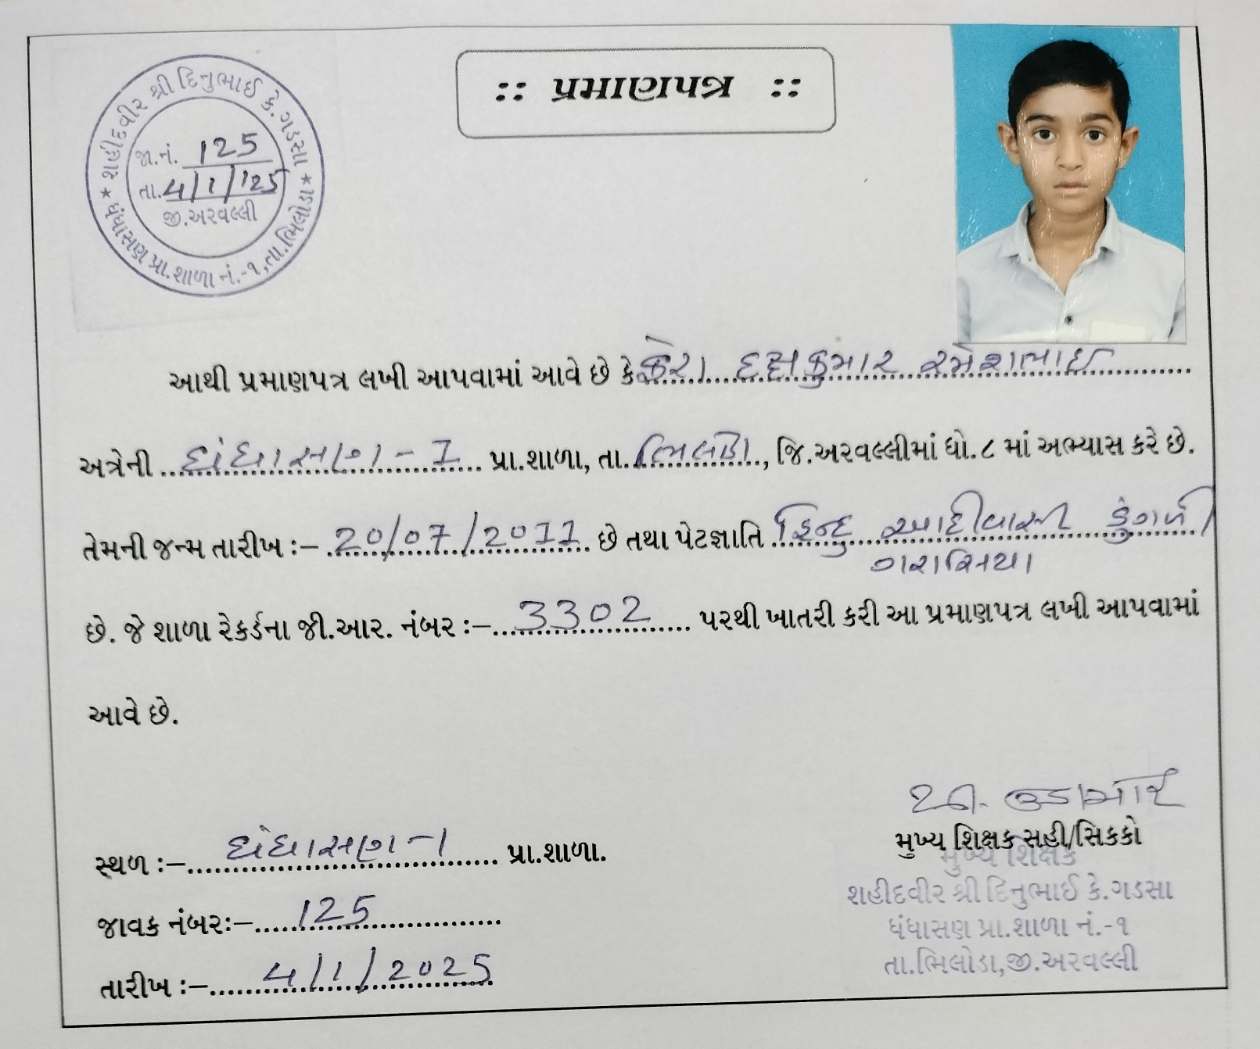 :: પ્રમાણપત્ર ::
★ શહીદવીર શ્રી દિનુભાઈ કે.ગડસા ★
ધંધાસણ પ્રા.શાળા નં.-૧,તા.ભિલોડા
જા.નં. 125
તા. 4/1/125
જી.અરવલ્લી
આથી પ્રમાણપત્ર લખી આપવામાં આવે છે કે દક્ષકુમાર રમેશભાઇ
અત્રેની ધંધાસણ - 1 પ્રા.શાળા, તા. ભિલોડા, જિ.અરવલ્લીમાં ધો.૮ માં અભ્યાસ કરે છે.
તેમની જન્મ તારીખ :- 20/07/2011 છે તથા પેટજ્ઞાતિ હિન્દુ આદીવાસી ડુંગરી
ગરાસિયા
છે. જે શાળા રેકર્ડના જી.આર. નંબર :- 3302 પરથી ખાતરી કરી આ પ્રમાણપત્ર લખી આપવામાં
આવે છે.
સ્થળ :- ધંધાસણ -1 પ્રા.શાળા.
જાવક નંબર:- 125
તારીખ :- 4/1/2025
મુખ્ય શિક્ષક સહી/સિકકો
મુખ્ય શિક્ષક
શહીદવીર શ્રી દિનુભાઈ કે.ગડસા
ધંધાસણ પ્રા.શાળા નં.-૧
તા.ભિલોડા,જી.અરવલ્લી